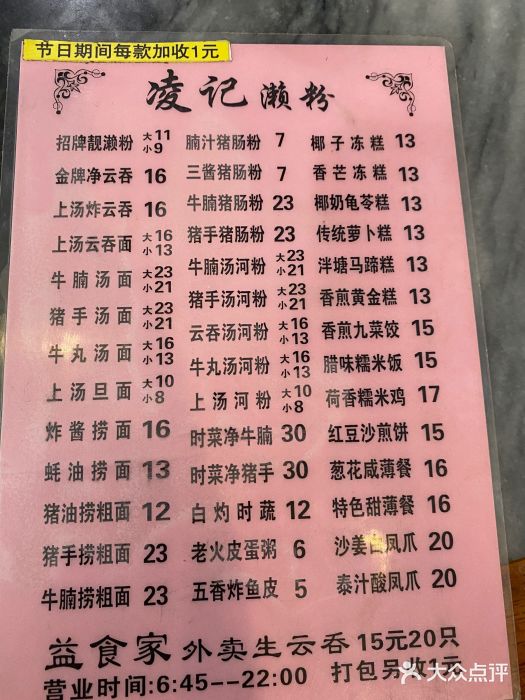 节日期间每款加收1元
凌记濑粉
招牌靓濑粉 大11 小9
金牌净云吞 16
上汤炸云吞 16
上汤云吞面 大16 小13
牛腩汤面 大23 小21
猪手汤面 大23 小21
牛丸汤面 大16 小13
上汤旦面 大10 小8
炸酱捞面 16
蚝油捞面 13
猪油捞粗面 12
猪手捞粗面 23
牛腩捞粗面 23
腩汁猪肠粉 7
三酱猪肠粉 7
牛腩猪肠粉 23
猪手猪肠粉 23
牛腩汤河粉 大23 小21
猪手汤河粉 大23 小21
云吞汤河粉 大16 小13
牛丸汤河粉 大16 小13
上汤河粉 大10 小8
时菜净牛腩 30
时菜净猪手 30
白灼时蔬 12
老火皮蛋粥 6
五香炸鱼皮 5
椰子冻糕 13
香芒冻糕 13
椰奶龟苓糕 13
传统萝卜糕 13
泮塘马蹄糕 13
香煎黄金糕 13
香煎九菜饺 15
腊味糯米饭 15
荷香糯米鸡 17
红豆沙煎饼 15
葱花咸薄餐 16
特色甜薄餐 16
沙姜白凤爪 20
泰汁酸凤爪 20
益食家 外卖生云吞 15元20只
营业时间:6:45--22:00 打包另收一元
大众点评